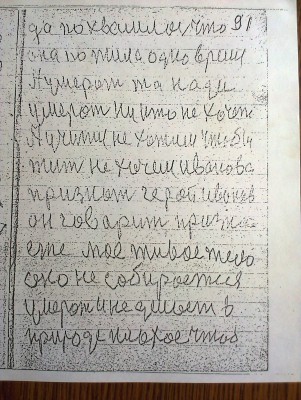 да похвалилос что 91
она пожила одно время
А умерат та нади
умерат ни кто не хочет
не хотим чтобы
не хочеш иванова
признат герой иванов
он говарит призна
ете мое живое тело
оно не собирается
умерат и не делает в
природе плохое чтоб